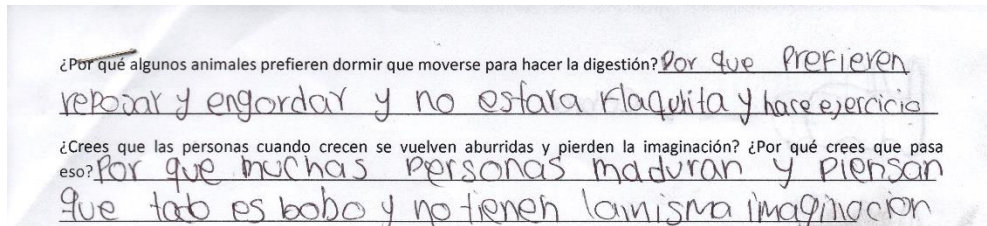 ¿Por qué algunos animales prefieren dormir que moverse para hacer la digestión? Por que Prefieren
reposar y engordar y no estara flaquita y hace ejercicio
¿Crees que las personas cuando crecen se vuelven aburridas y pierden la imaginación? ¿Por qué crees que pasa
eso? Por que muchas personas maduran y piensan
que todo es bobo y no tienen la misma imaginacion